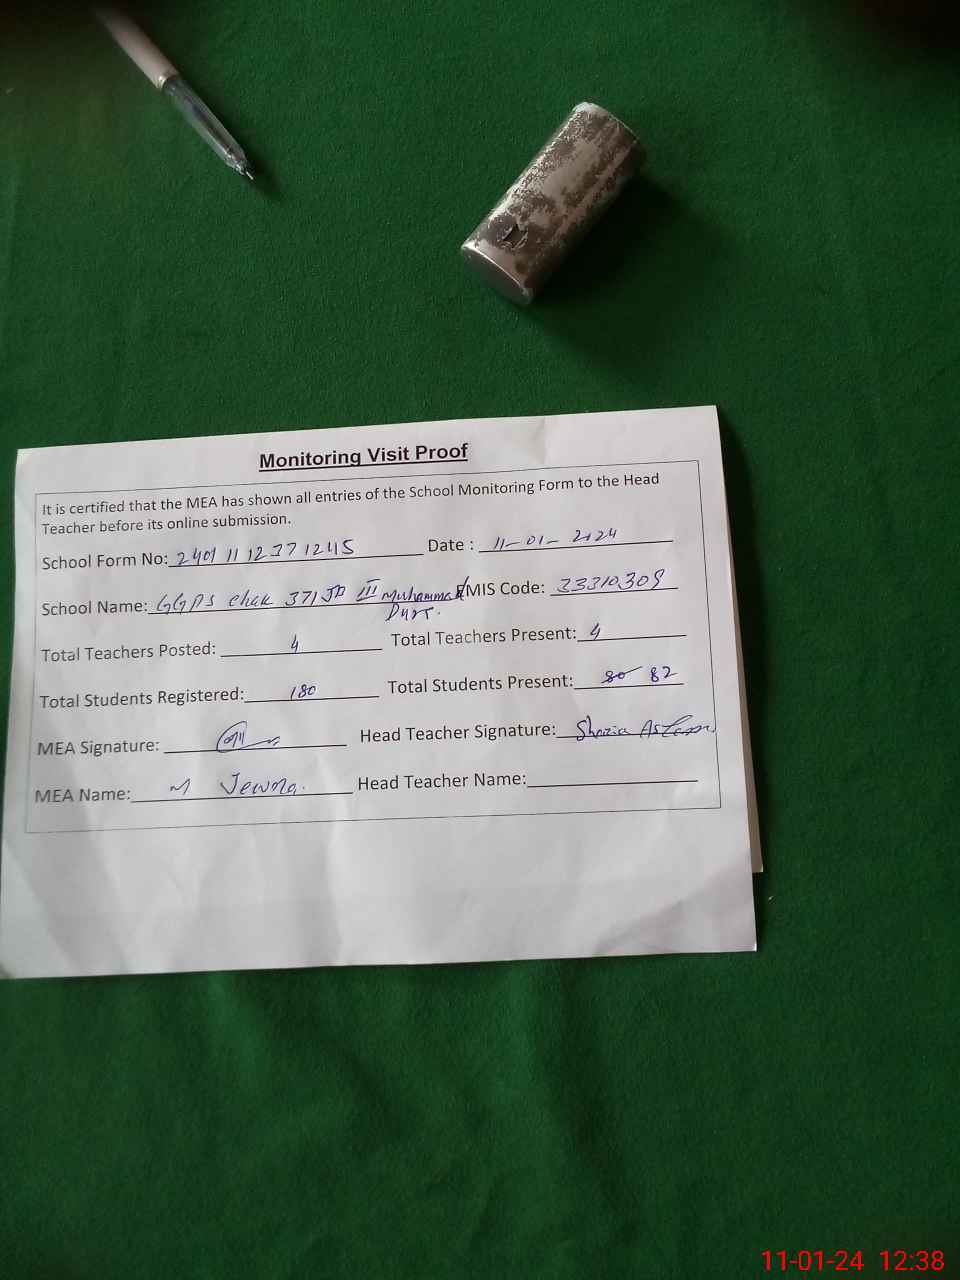 Monitoring Visit Proof
It is certified that the MEA has shown all entries of the School Monitoring Form to the Head
Teacher before its online submission.
School Form No: 2401 11 12 37 1245 Date : 11-01-2024
School Name: GGPS chak 371 JB III Muhammad EMIS Code: 33310309
Total Teachers Posted: 4 Total Teachers Present: 4
Total Students Registered: 180 Total Students Present: 80 82
MEA Signature: Head Teacher Signature: Shazia Aslam
MEA Name: M Head Teacher Name:
11-01-24 12:38